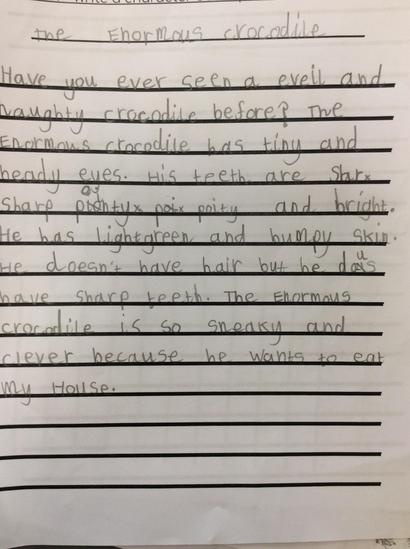 The Enormous crocodile
Have you ever seen a eveil and
naughty crocodile before? The
Enormous crocodile has tiny and
beady eyes. His teeth are
Sharp poity and bright.
He has lightgreen and bumpy skin.
He doesn't have hair but he dus
have sharp teeth. The Enormous
crocodile is so sneaky and
clever because he wants to eat
My House.